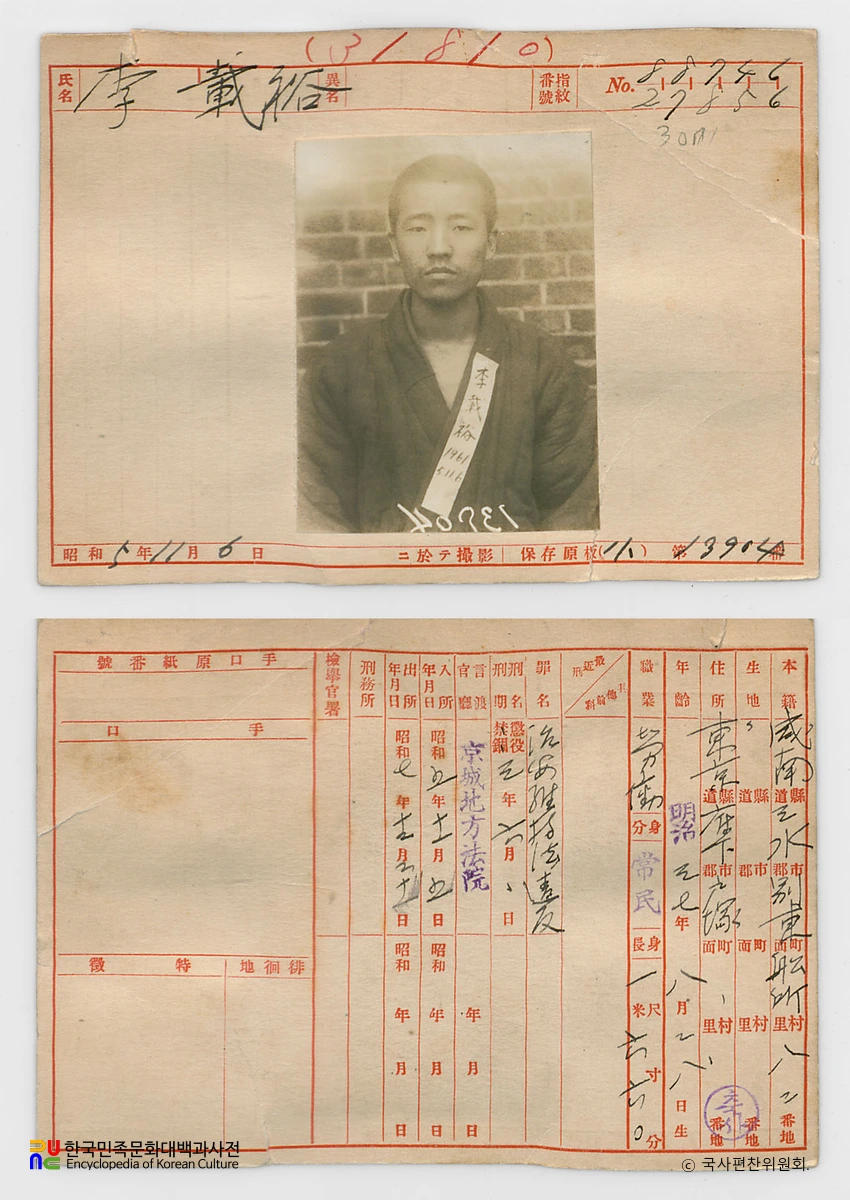 (31810)
氏名 李載裕 異名 指紋番號 No. 88746
27856
李載裕
1961
5.11.6
13904
昭和5年11月6日 ニ於テ撮影 保存原板(小) 第13904番
本籍 咸南道三水郡別東面船所里八二番地
生地 〃 道縣 郡市 面町 里村 番地
住所 東京府下戸塚 道縣 郡市 面町 里村 番地
年齢 明治三七年八月二八日生
職業 勞働
身分 常民
身長 一米六六〇 尺寸分
最近刑 其他前科
罪名 治安維持法違反
刑名 刑期 懲役 禁錮 三年六月、日
言渡官廳 京城地方法院 年月日
入所年月日 昭和五年十一月五日 昭和 年 月 日
出所年月日 昭和七年 月 日 昭和 年 月 日
刑務所
檢擧官署
手口原紙番號
手口
徘徊地
特徵
한국민족문화대백과사전
Encyclopedia of Korean Culture
© 국사편찬위원회.